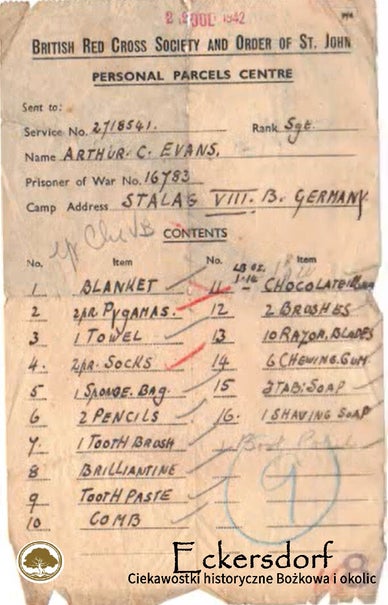 1942
BRITISH RED CROSS SOCIETY AND ORDER OF ST. JOHN
PERSONAL PARCELS CENTRE
Sent to:
Service No. 2718541. Rank Sgt.
Name ARTHUR. C. EVANS.
Prisoner of War No. 16783
Camp Address STALAG VIII. B. GERMANY
CONTENTS
No. Item No. Item
1 BLANKET 11 LB OZ. 1-12 CHOCOLATE
2 2 pr. PYGAMAS. 12 2 BRUSHES
3 1 TOWEL 13 10 RAZOR BLADES
4. 2 pr. SOCKS 14 6 CHEWING. GUM
5 1 SPONGE. BAG. 15 2 TAB: SOAP
6 2 PENCILS 16. 1 SHAVING SOAP
7 1 TOOTH BRUSH
8 BRILLIANTINE
9 TOOTH PASTE
10 COMB
9
Eckersdorf
Ciekawostki historyczne Bożkowa i okolic